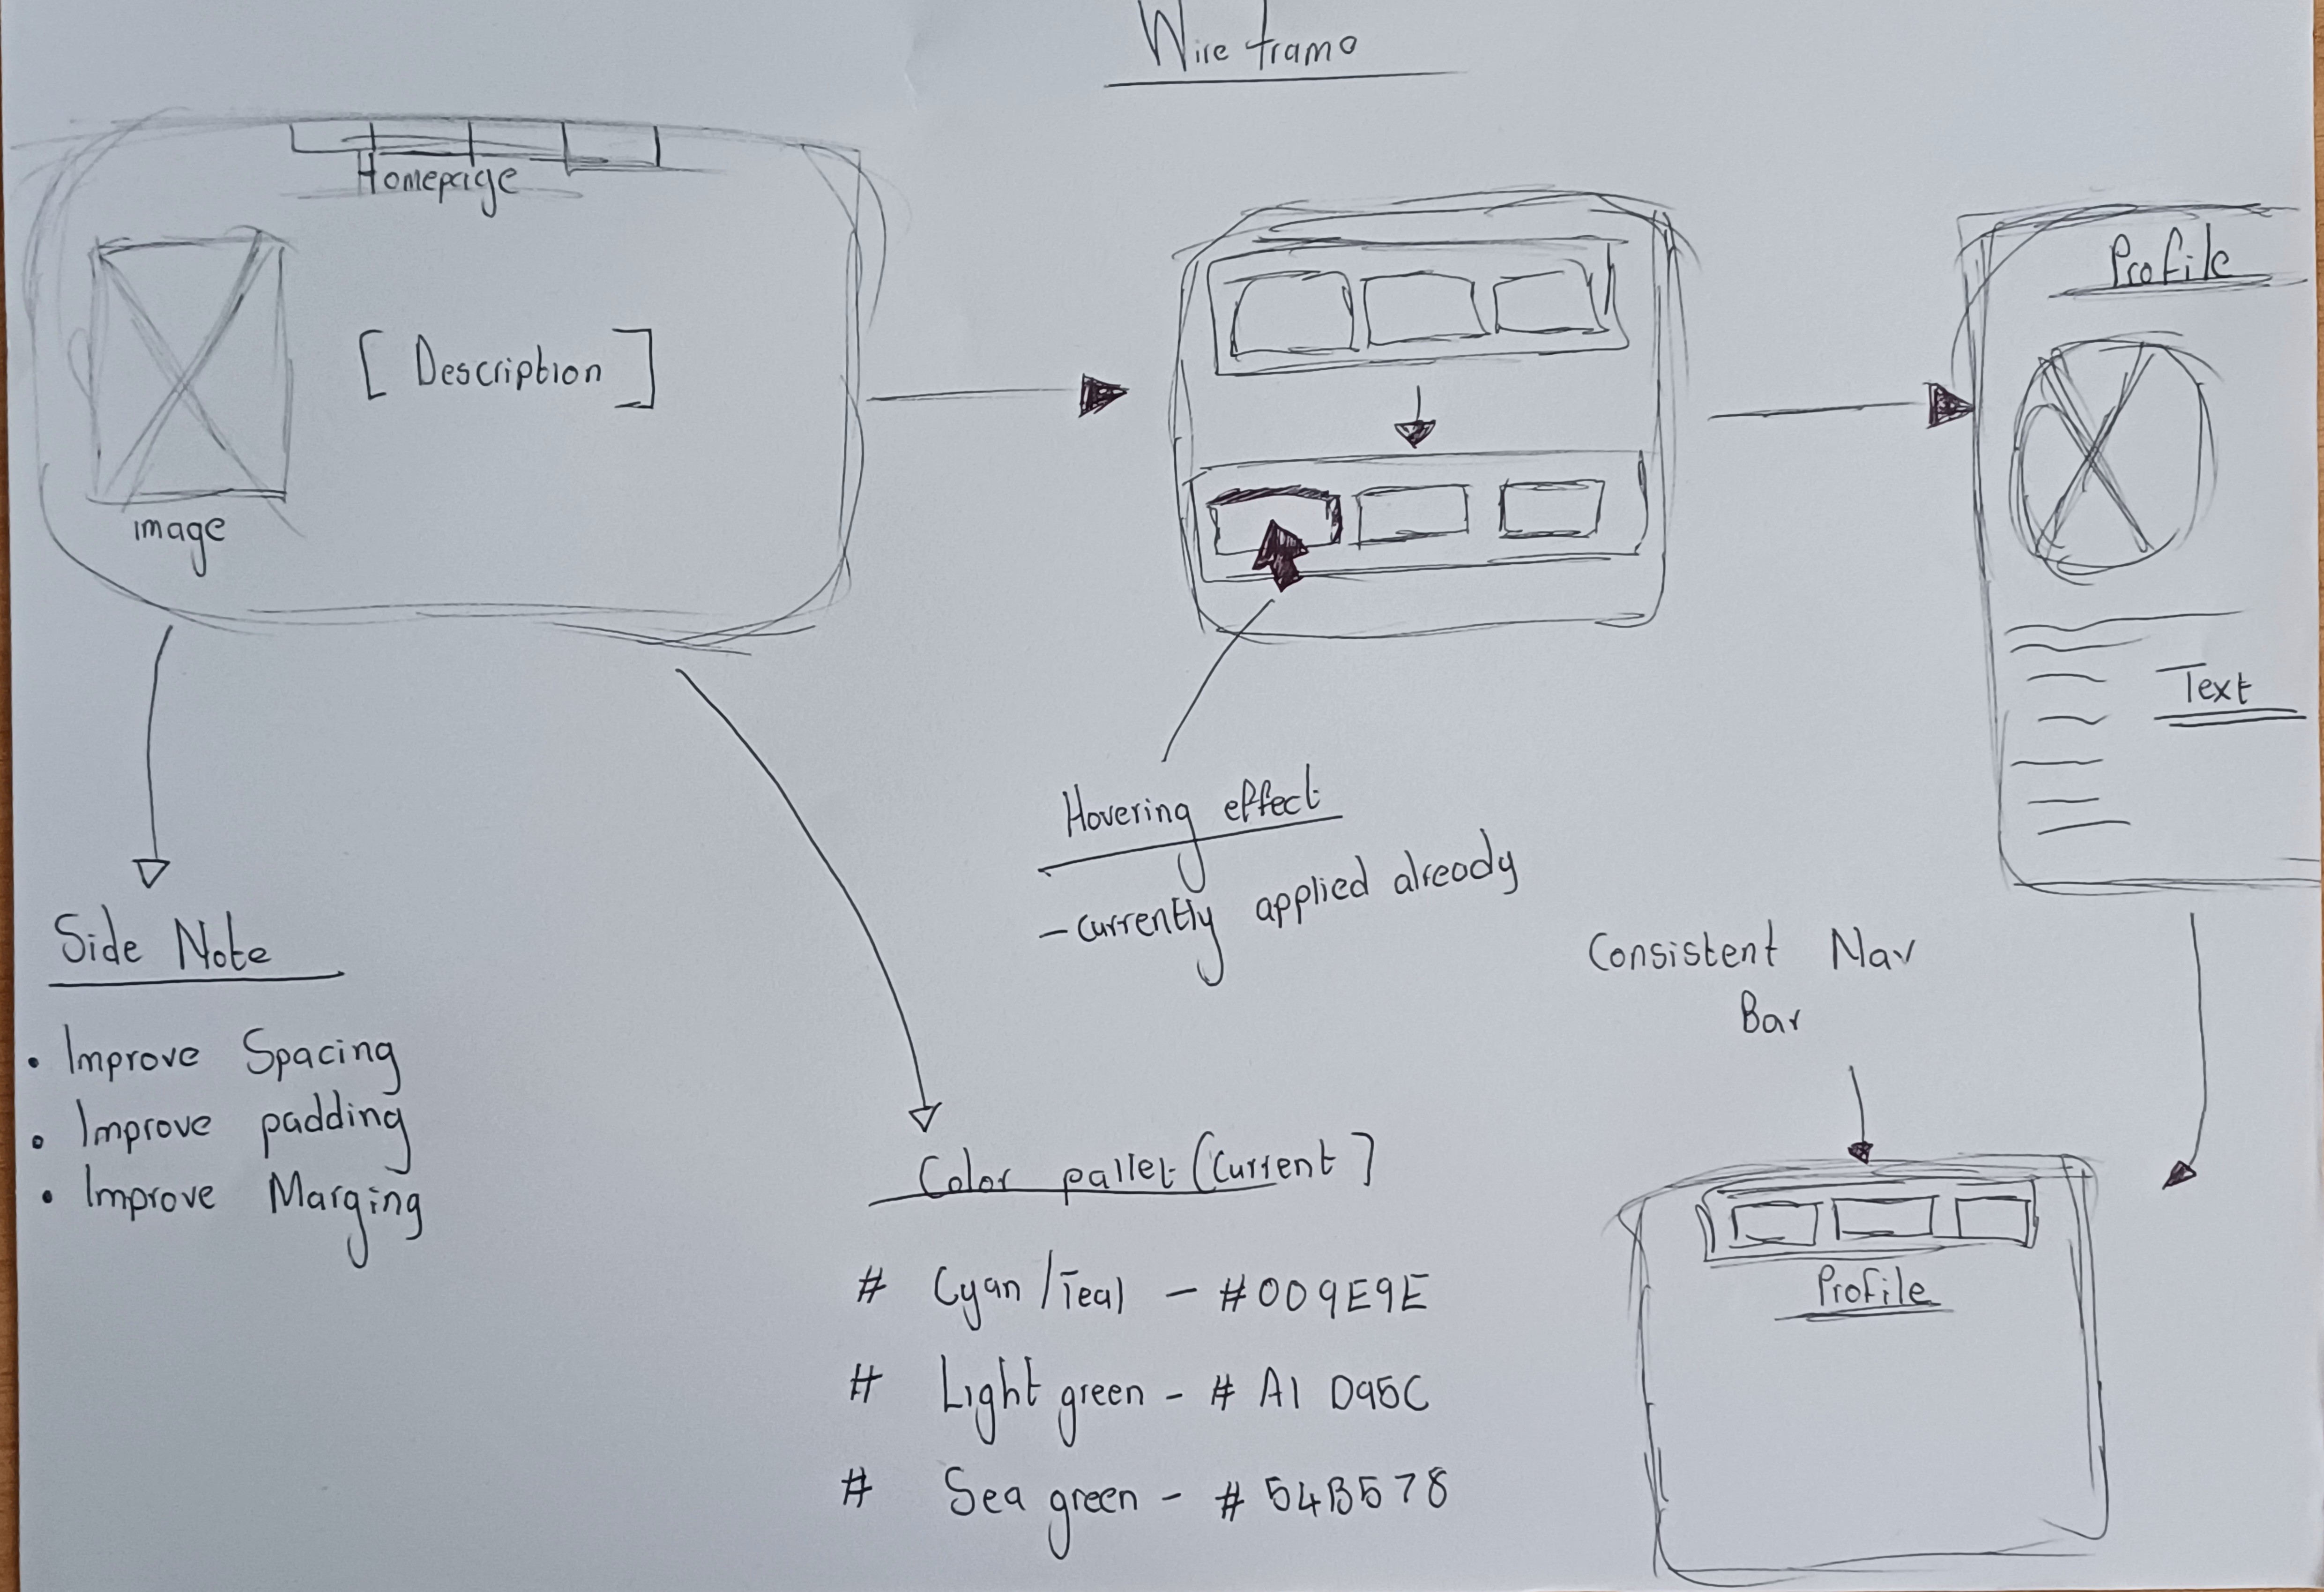 Wire frame
Homepage
[ Description ]
image
Profile
Text
Hovering effect
- currently applied already
Side Note
• Improve Spacing
• Improve padding
• Improve Marging
Consistent Nav
Bar
Color pallet (Current]
# Cyan / Teal - #009E9E
# Light green - # A1 D95C
# Sea green - # 54B578
Profile